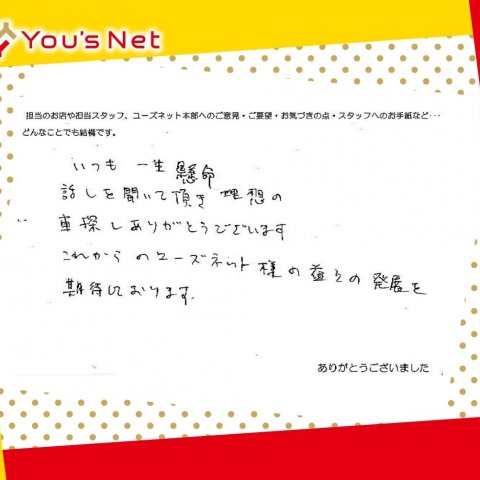 You's Net
担当のお店や担当スタッフ、ユーズネット本部へのご意見・ご要望・お気づきの点・スタッフへのお手紙など・・・
どんなことでも結構です。
いつも 一生 懸命
話しを聞いて頂き 理想の
車探しありがとうございます
これからのユーズネット様の益々の発展を
期待しております。
ありがとうございました